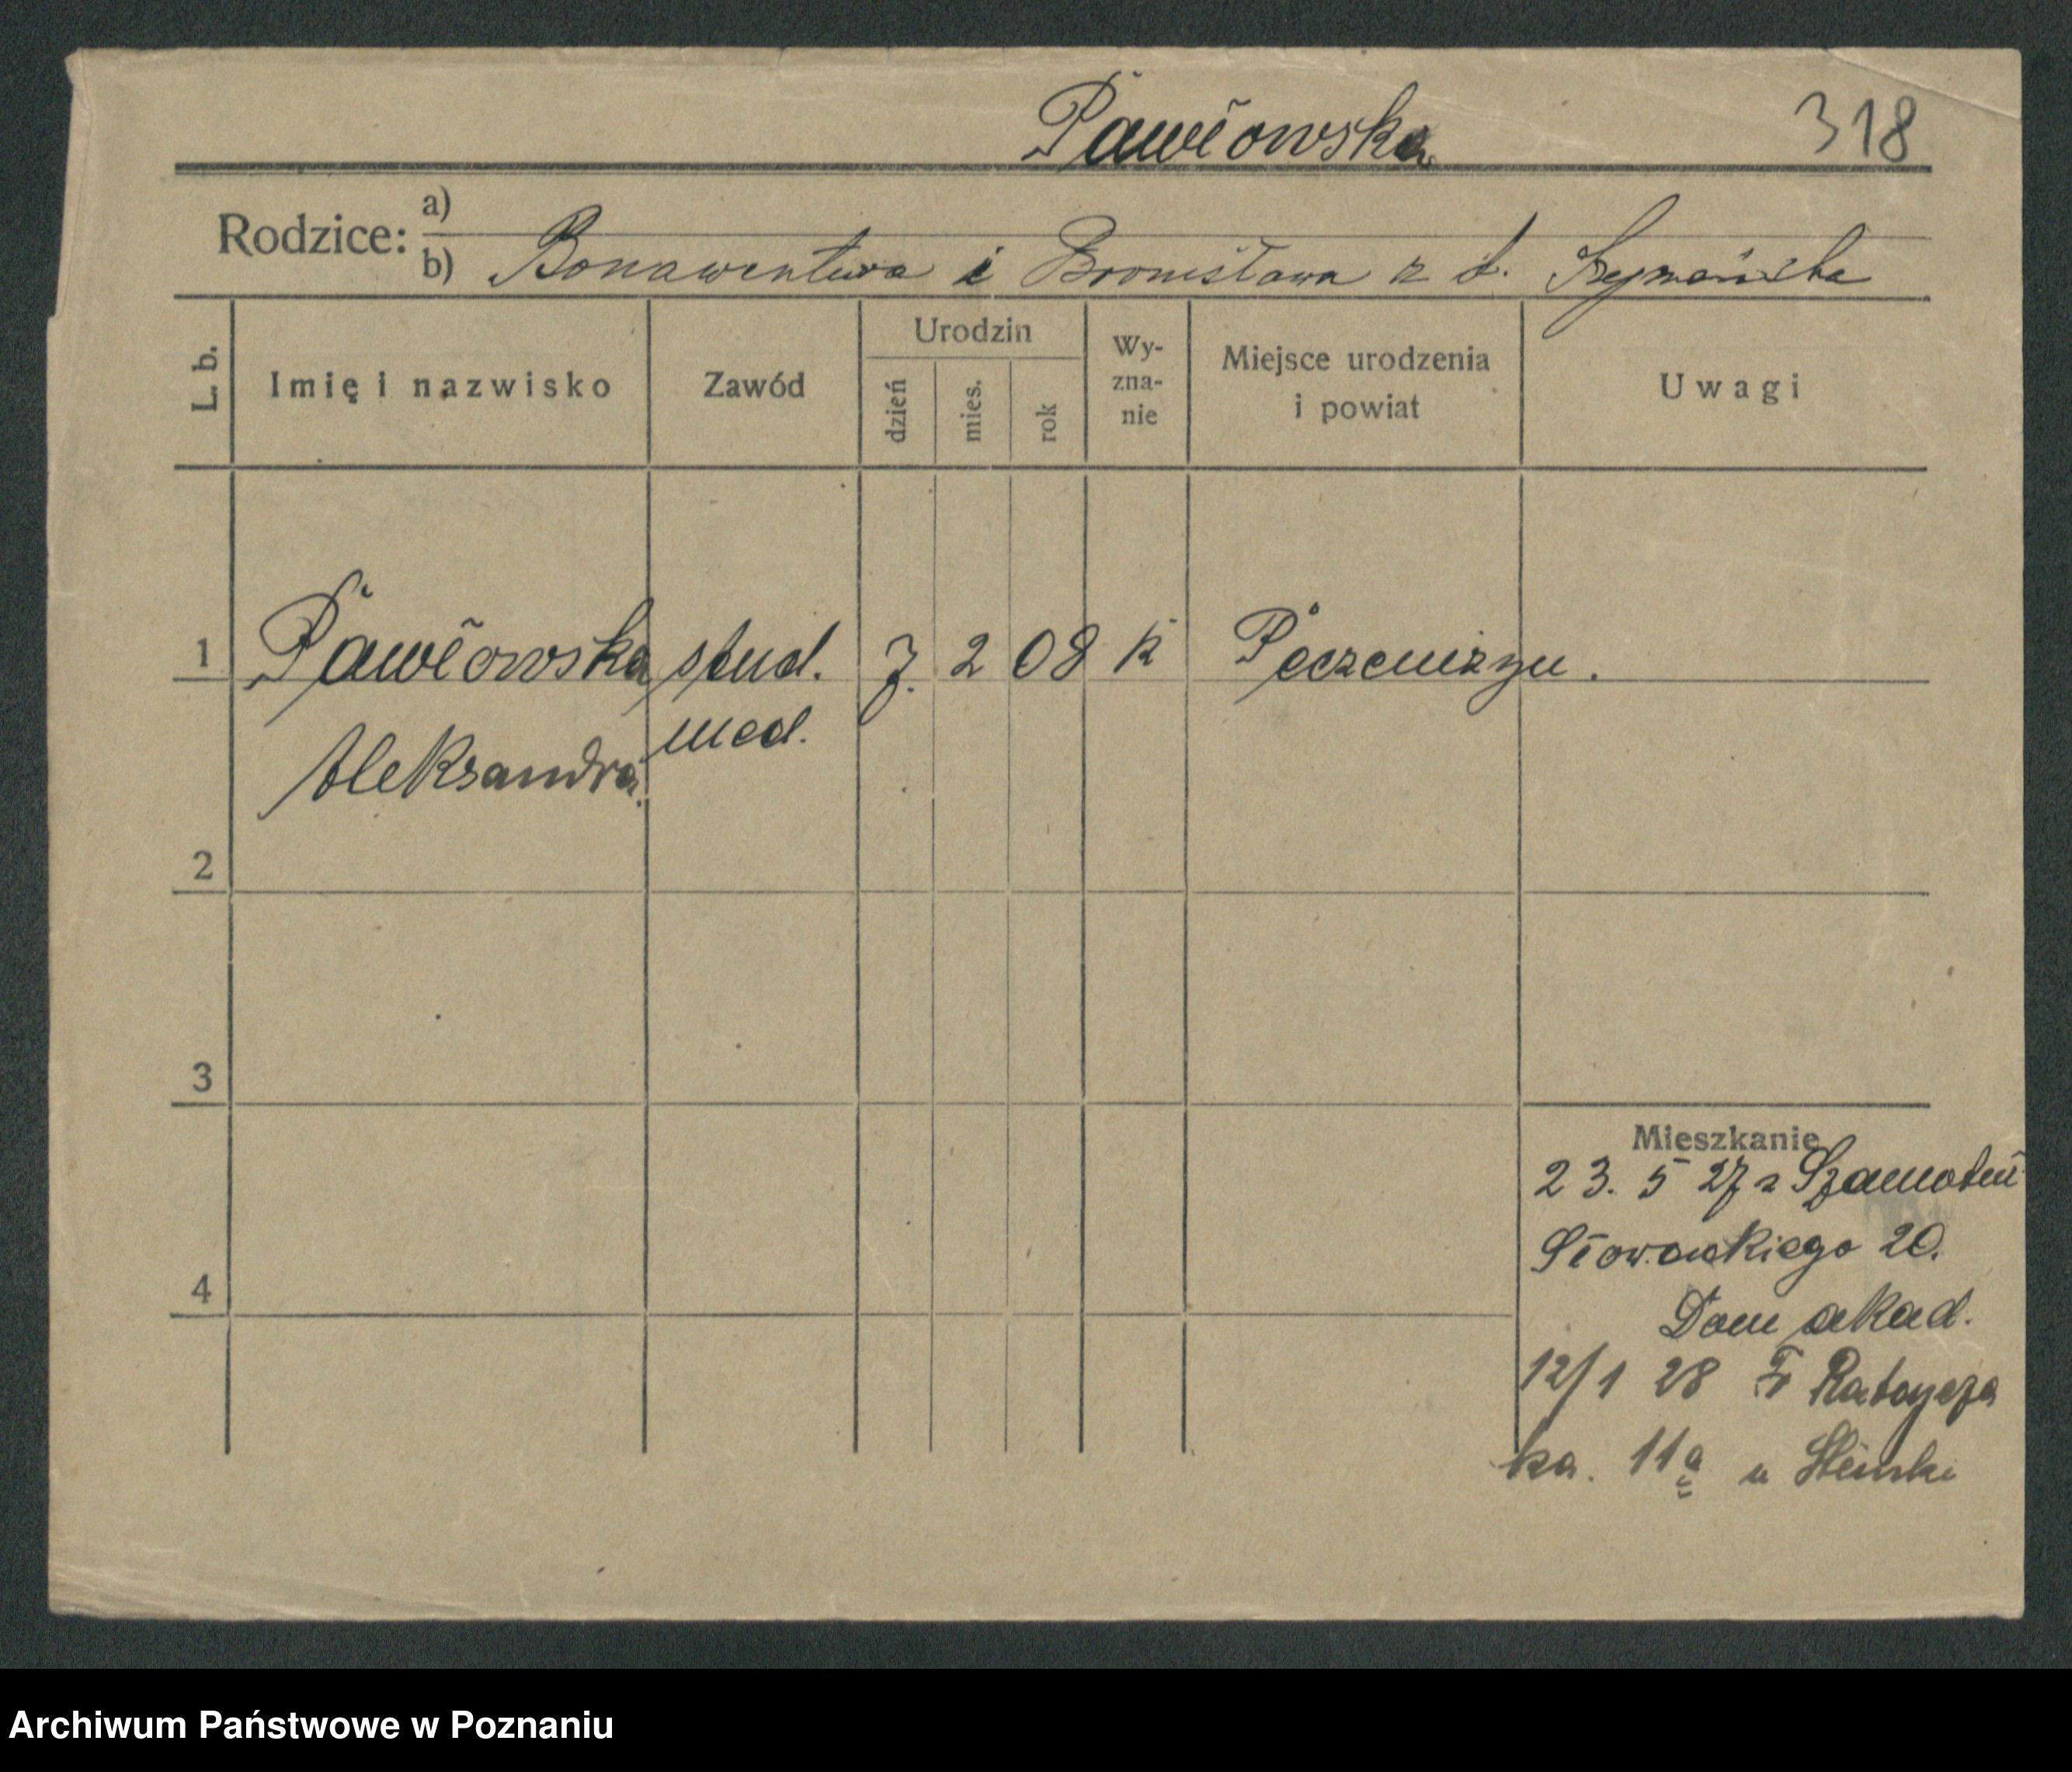 Pawłowska 318
Rodzice: a)
b) Bonawentura i Bronisława z d. Szymańska
L. b. Imię i nazwisko Zawód Urodzin dzień mies. rok Wyzna-nie Miejsce urodzenia i powiat Uwagi
1 Pawłowska stud. 7. 2 08 k Peczeniżyn.
med.
Aleksandra
2
3
Mieszkanie
23. 5 27 z Szamotuł
Słowackiego 20.
4
Dom akad.
12/1 28 Fr Ratajcza
ka. 11a u
Archiwum Państwowe w Poznaniu